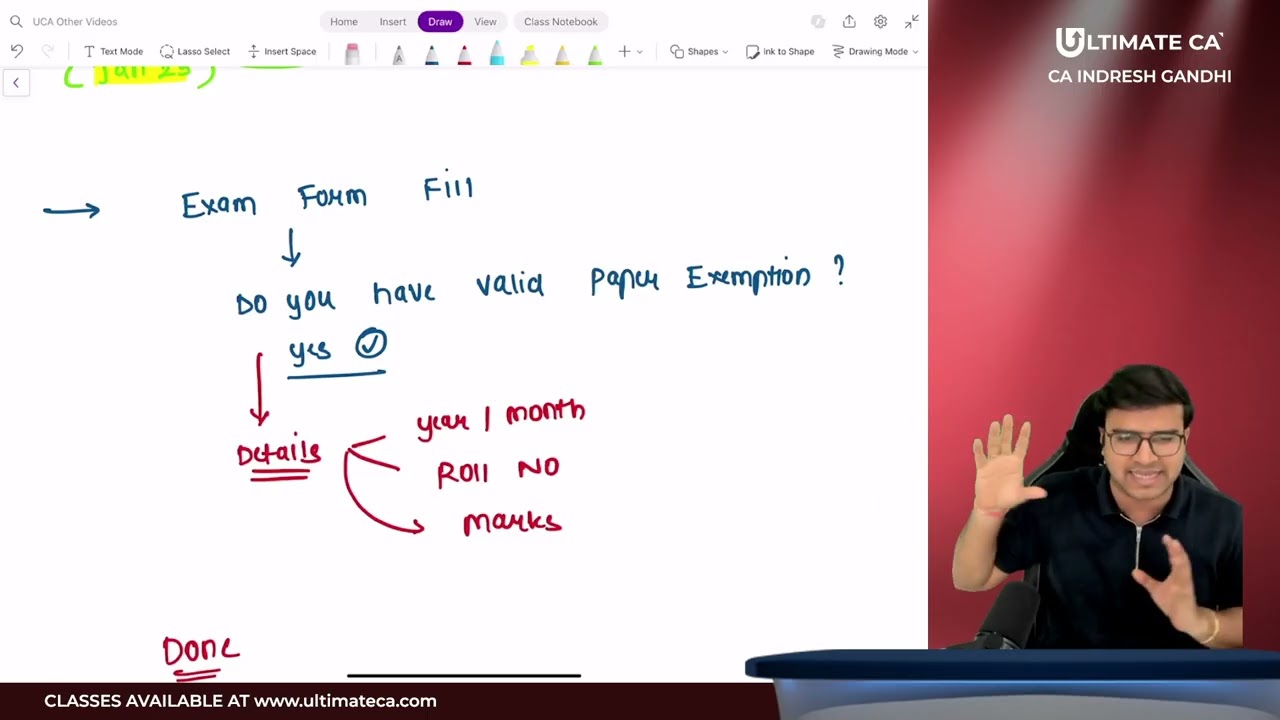 UCA Other Videos
Home Insert Draw View Class Notebook
Text Mode Lasso Select Insert Space Shapes Ink to Shape Drawing Mode
ULTIMATE CA
CA INDRESH GANDHI
(Jan 25)
Exam Form Fill
Do you have valid Paper Exemption ?
yes
Details
year / month
Roll No
marks
Done
CLASSES AVAILABLE AT www.ultimateca.com